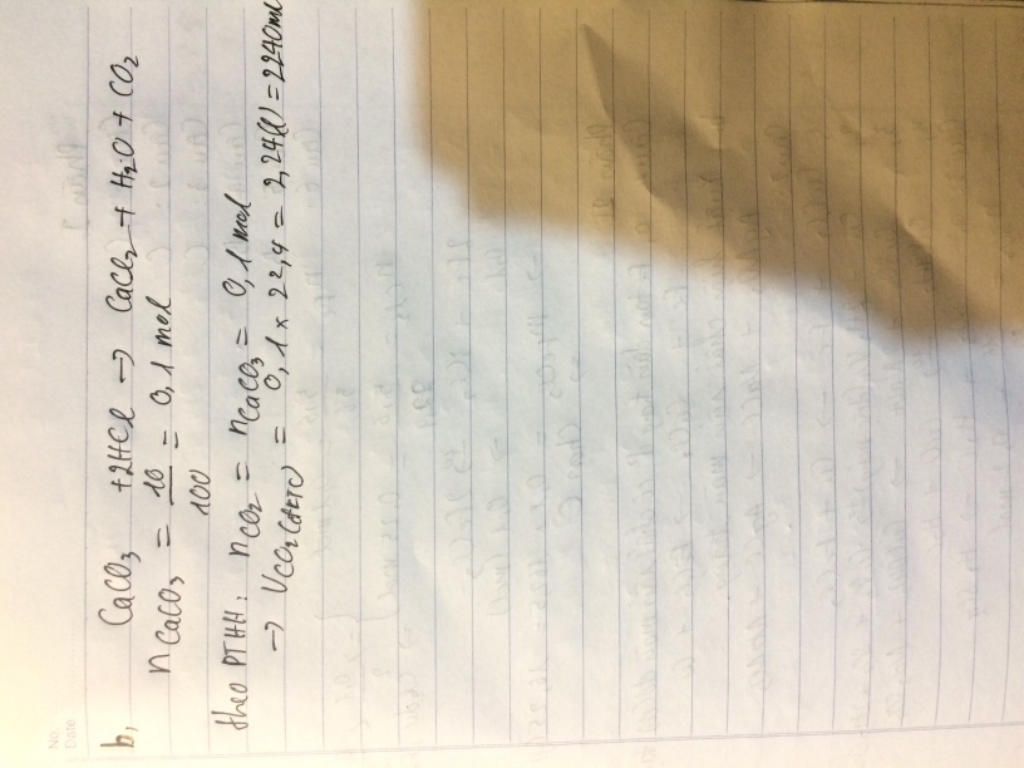 No.
Date
b, CaCO3 +2HCl → CaCl2 + H2O + CO2
nCaCO3 = 10/100 = 0,1 mol
theo PTHH: nCO2 = nCaCO3 = 0,1 mol
→ VCO2(đktc) = 0,1 x 22,4 = 2,24(l) = 2240ml